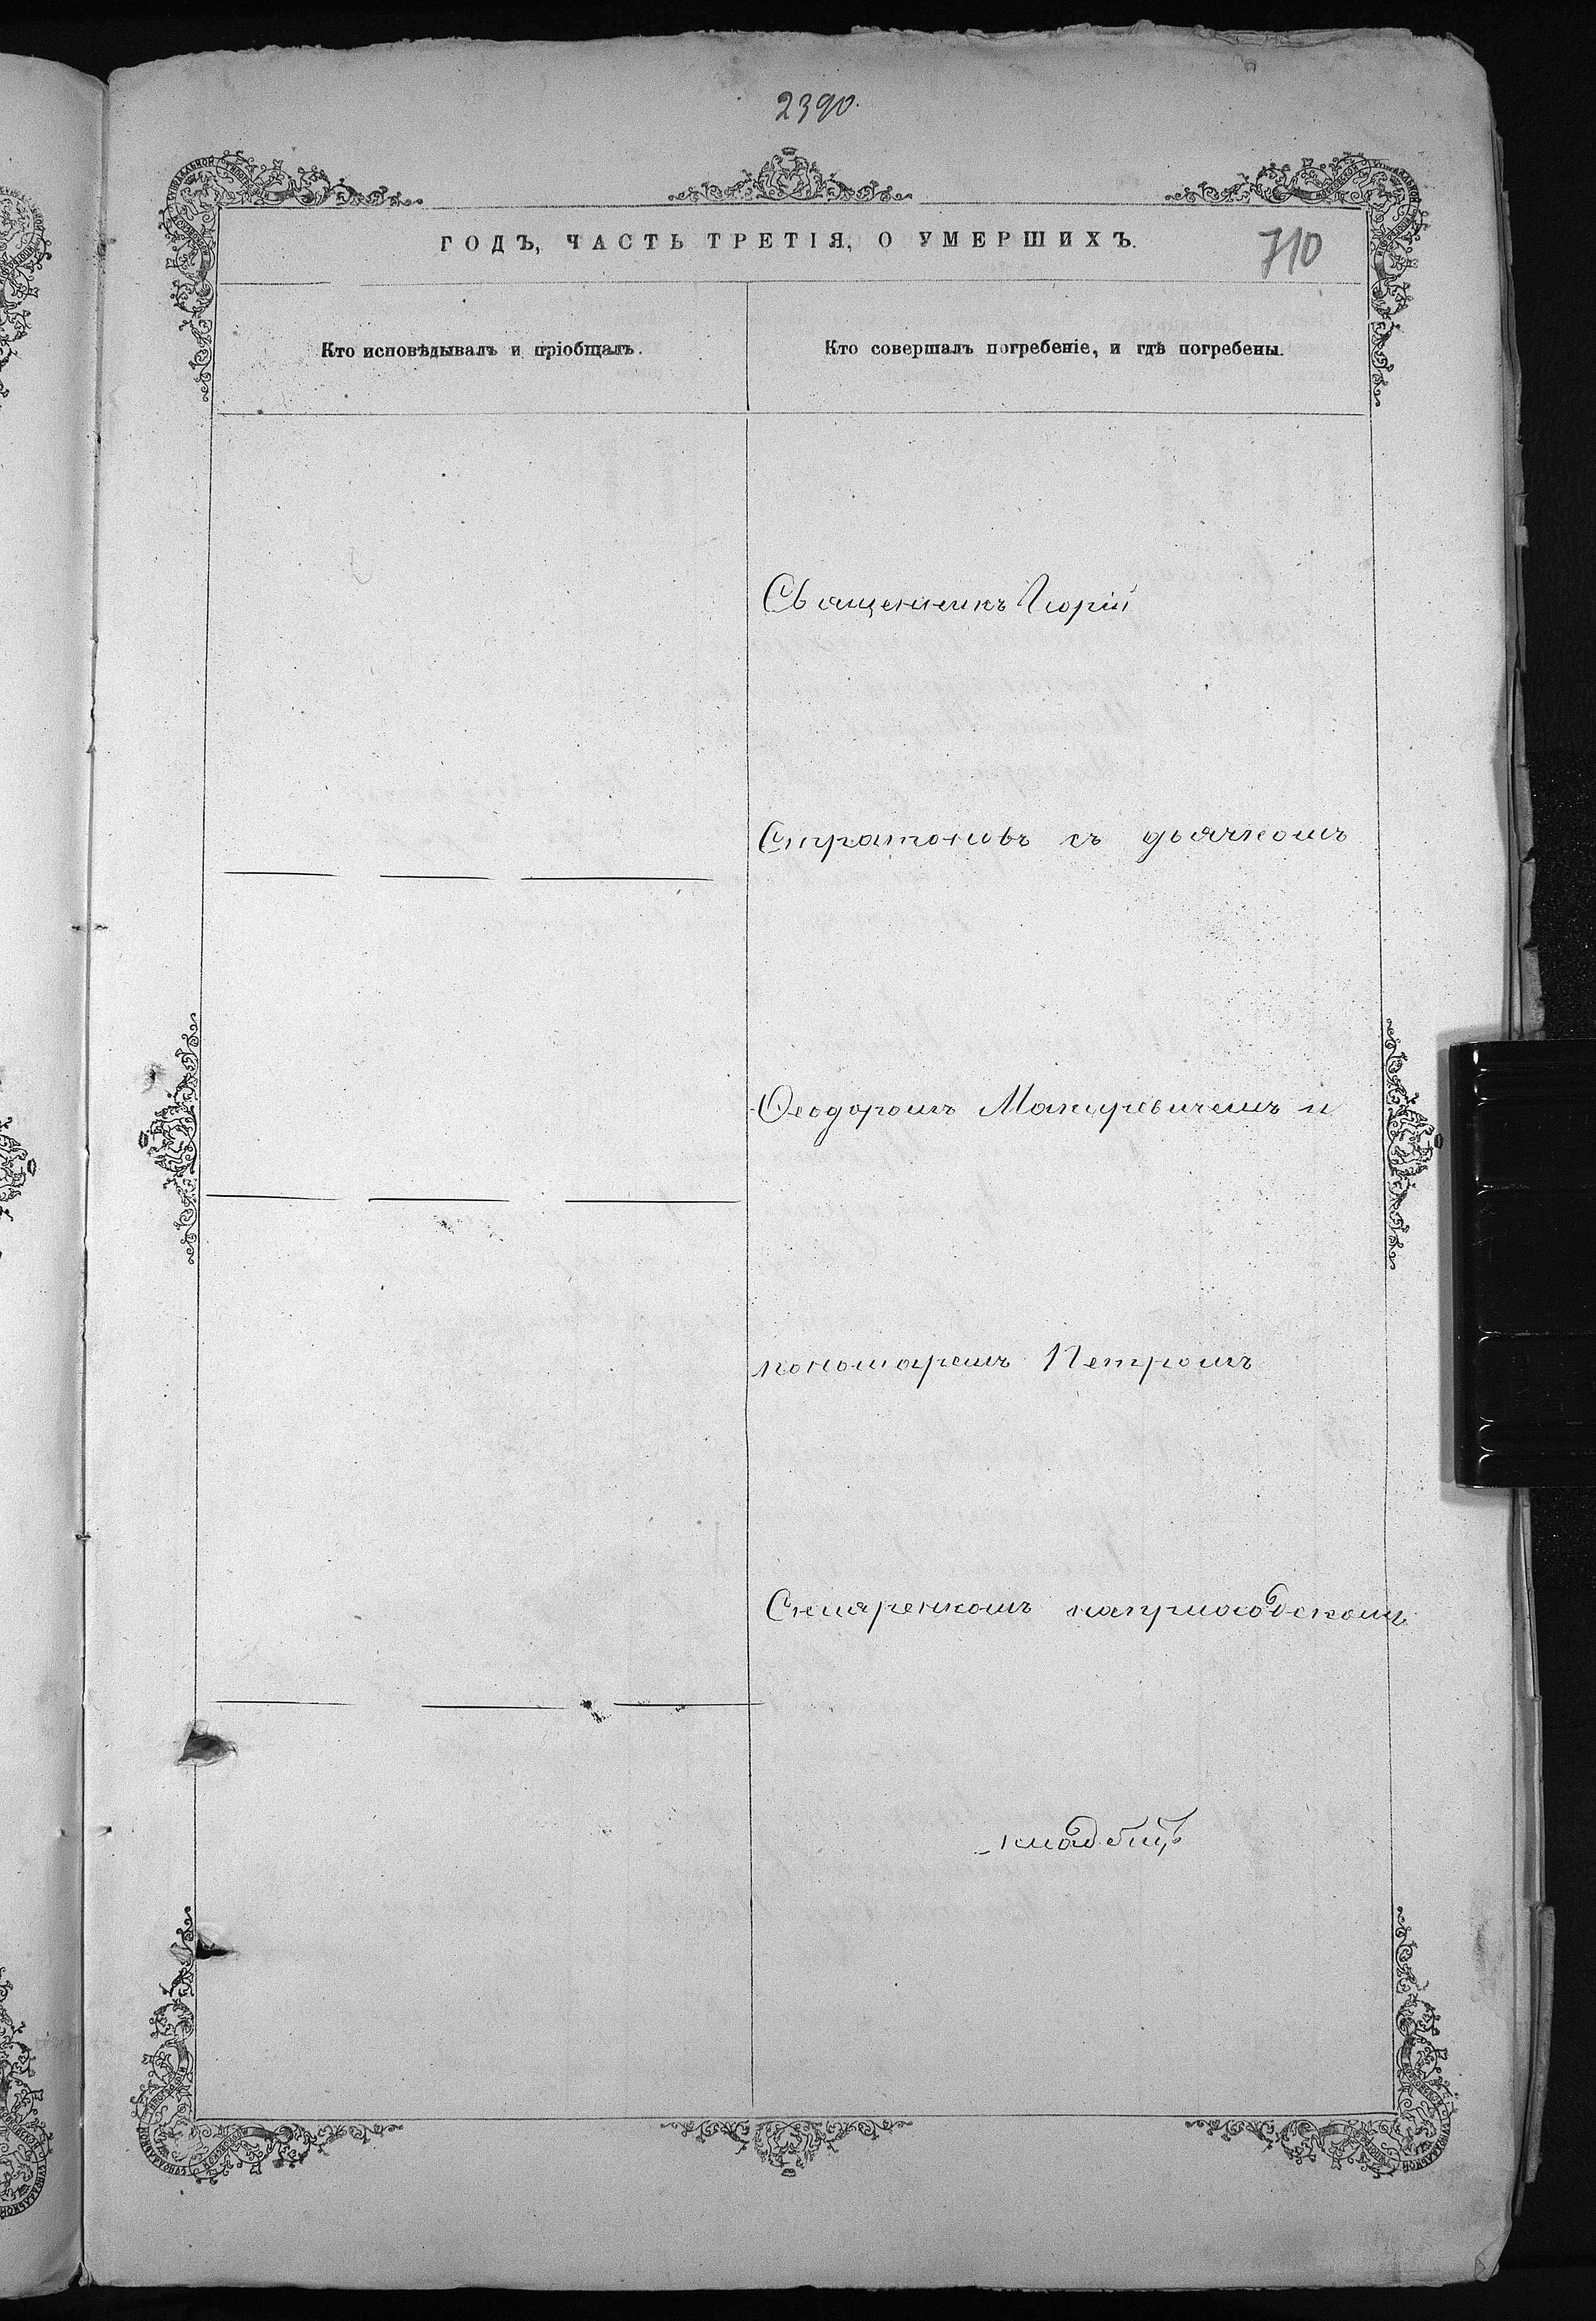 2390.
ГОДЪ, ЧАСТЬ ТРЕТІЯ, О УМЕРШИХЪ.
710
Кто исповѣдывалъ и пріобщалъ.
Кто совершалъ погребеніе, и гдѣ погребены.
Священникъ Іюрій
Стратоновъ съ дьячкомъ
Ѳеодоромъ Макуревичемъ и
пономаремъ Петромъ
Смаренкомъ наприходскомъ
кладбищѣ